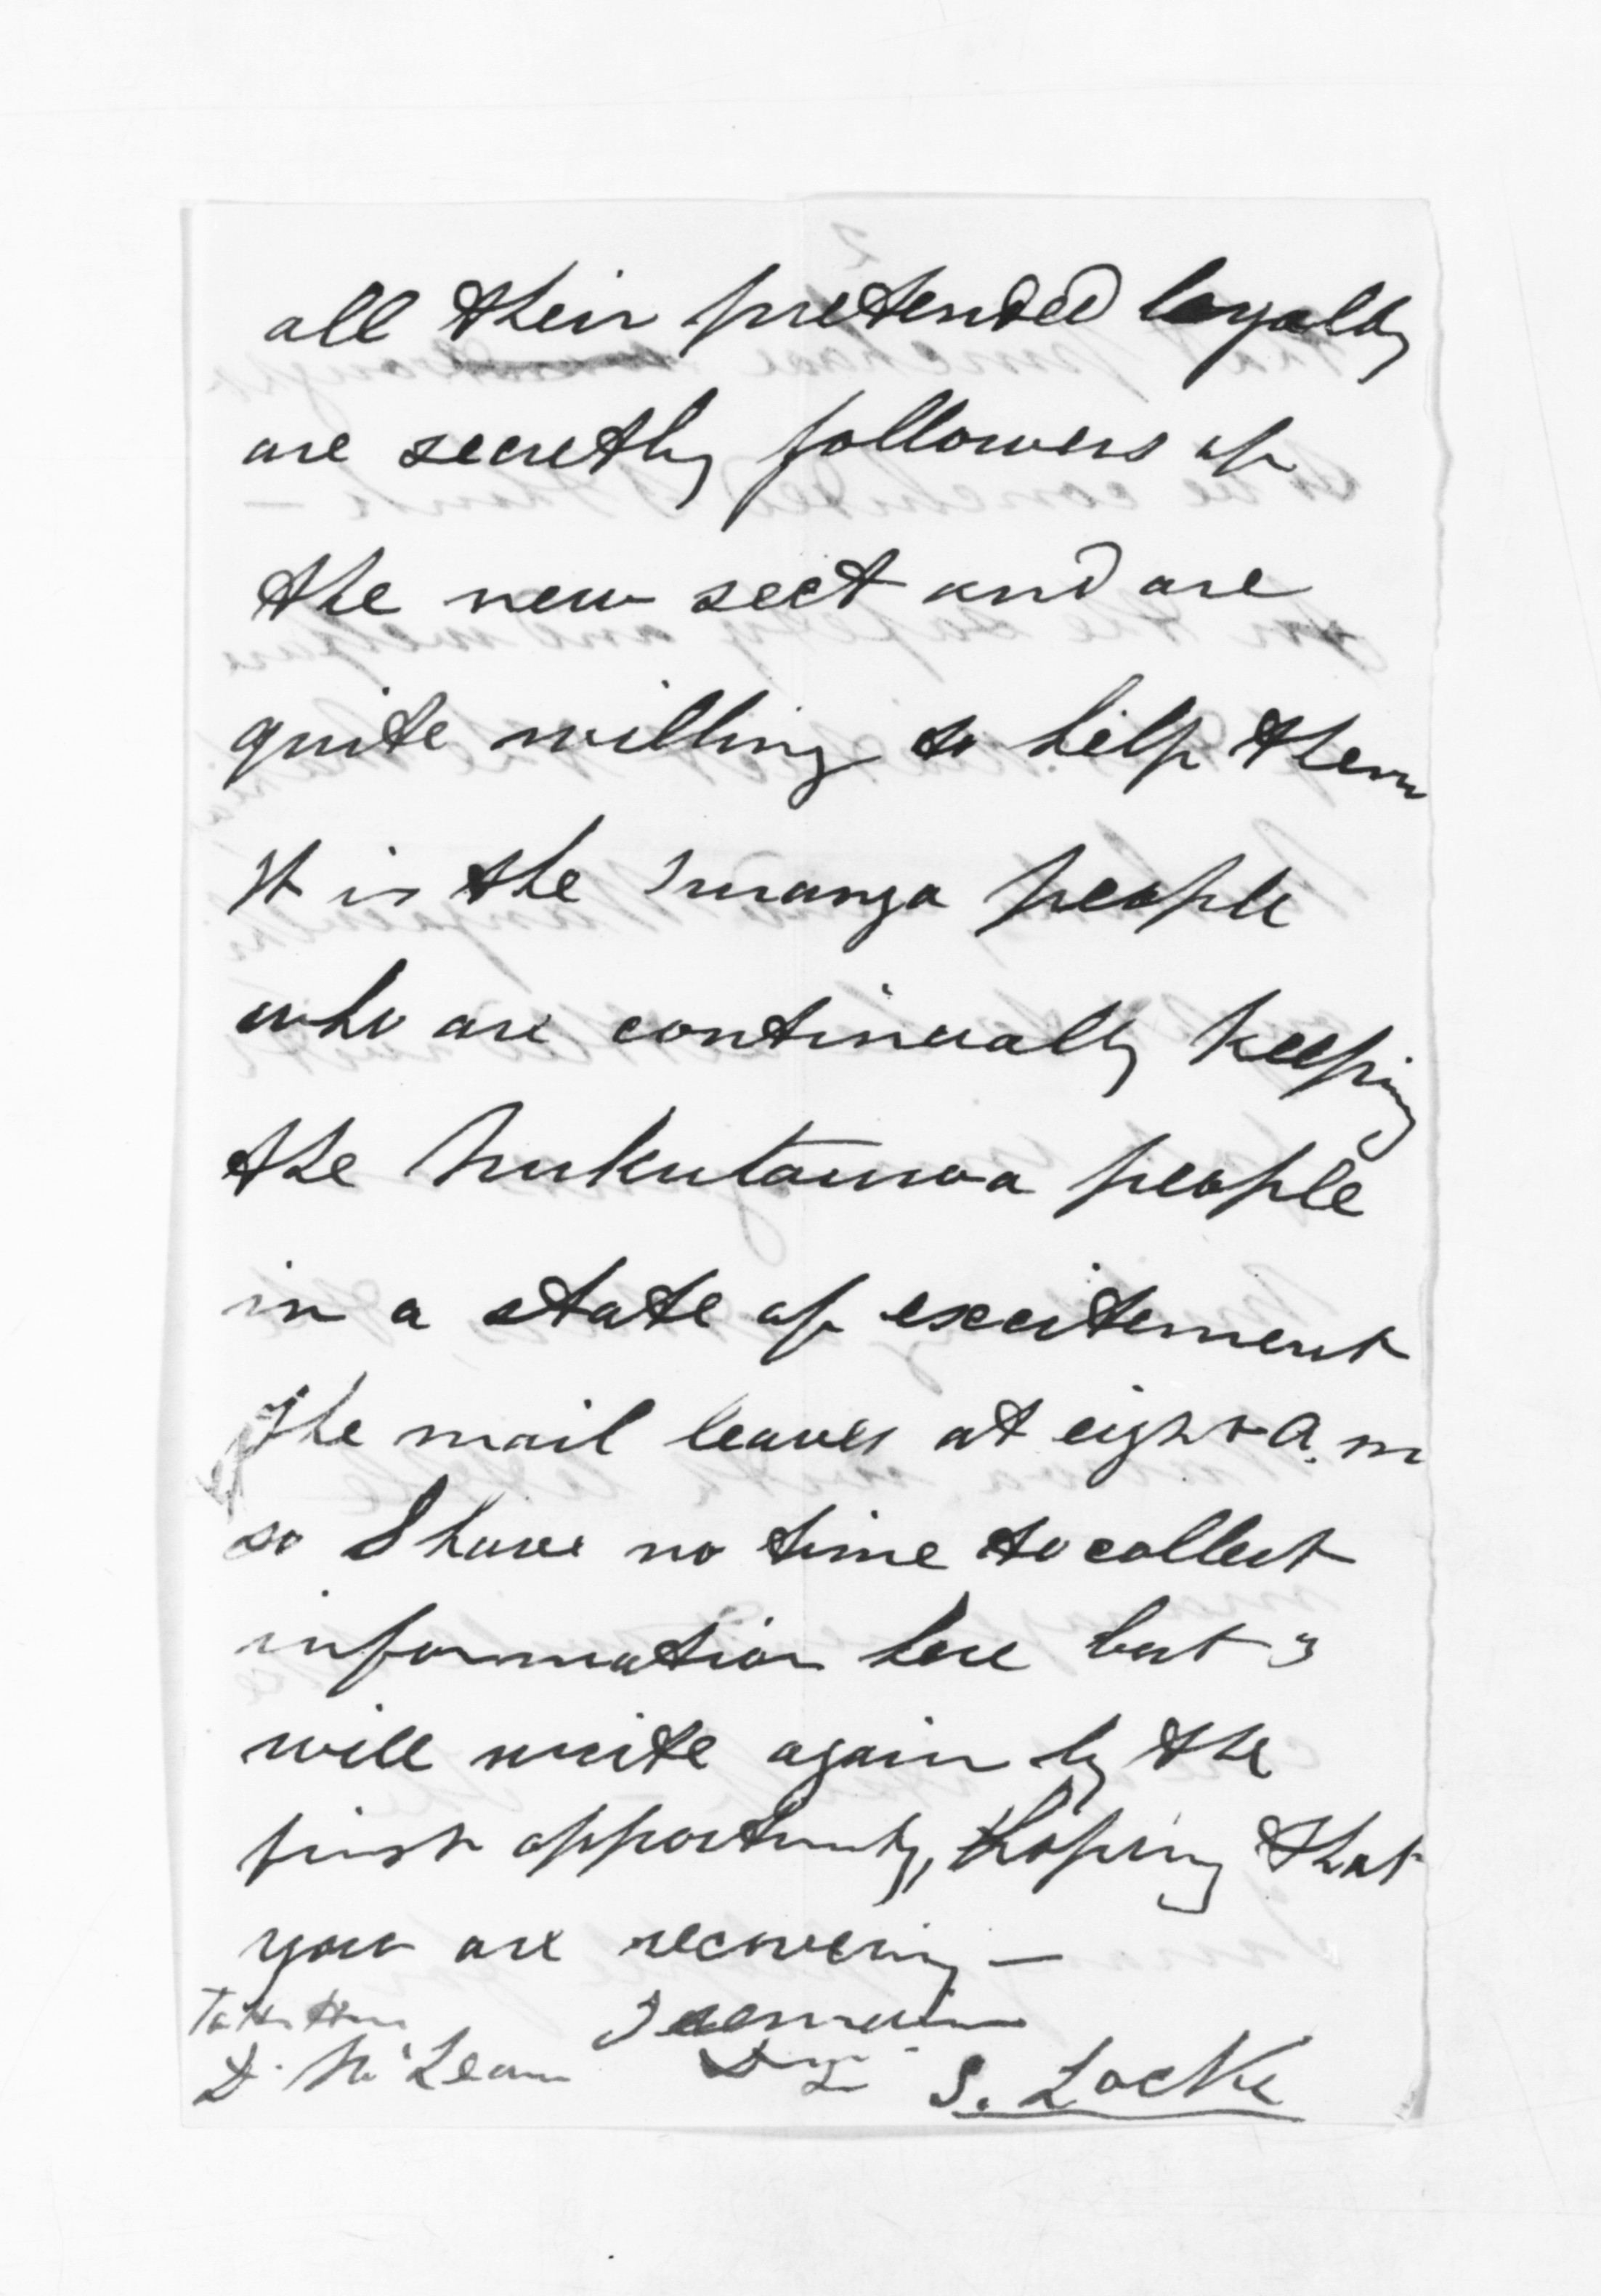 all their pretended loyalty
are secretly followers of
the new sect and are
quite willing to help them
It is the Turanga people
who are continually keeping
the Nukutaurua people
in a state of excitement
The mail leaves at eight A.m
so I have no time to collect
information here but I
will write again by the
first opportunity, hoping that
you are recovering —
I remain
To the Hon
D. McLean
S. Locke